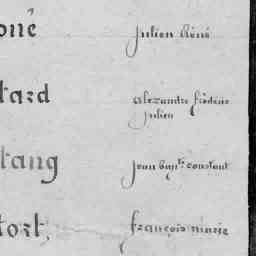 oné Julien Réné
tard alexandre frédéric
julien
tang jean bapte constant
tort. françois marie